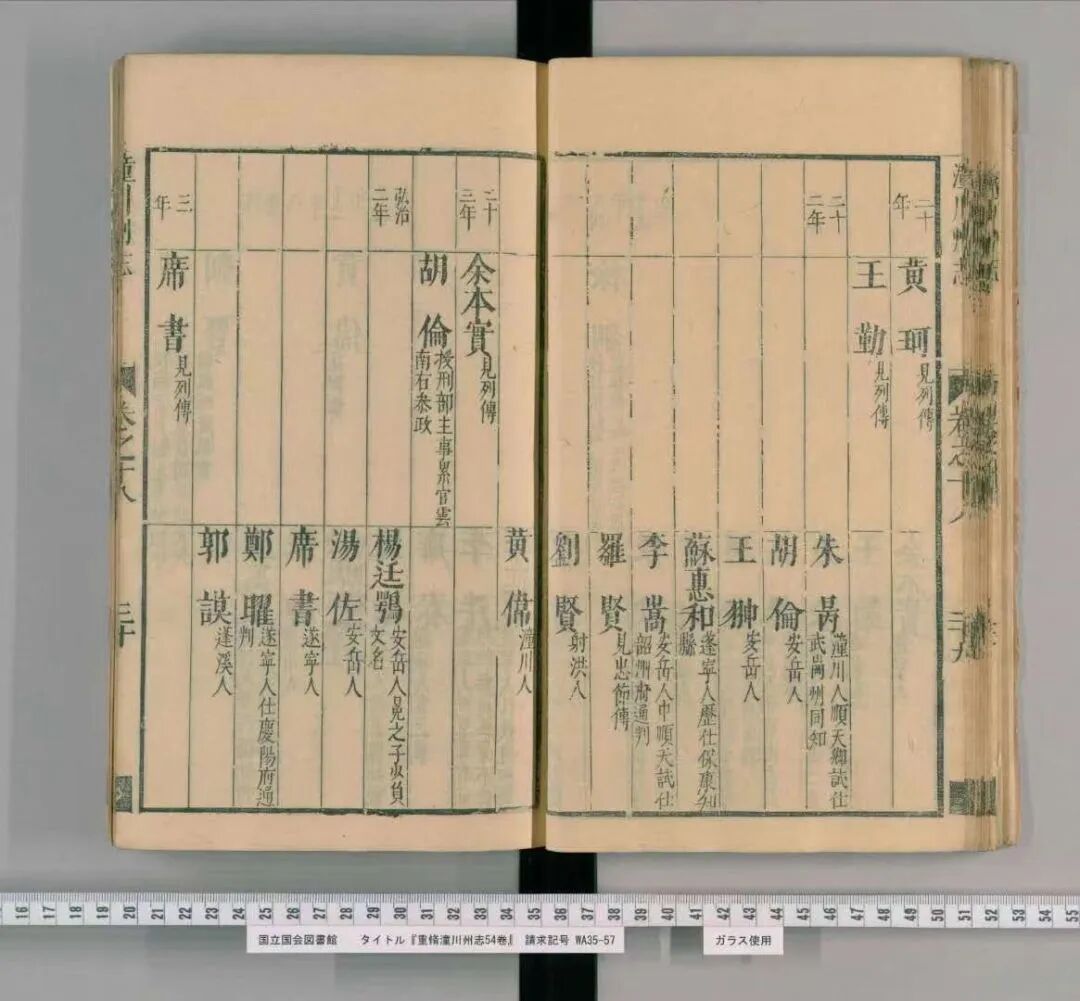 潼川州志
卷之十八
二十九
二十年
黃珂 見列傳
王勤 見列傳
二十二年
朱 潼川人順天鄉試仕
武岡州同知
胡倫 安岳人
王翀 安岳人
蘇惠和 遂寧人歷仕保康知
縣
李嵩 安岳人中順天試仕
韶州府通判
羅賢 見忠節傳
劉賢 射洪人
黃偉 潼川人
二十三年
余本實 見列傳
胡倫 授刑部主事累官雲
南右叅政
弘治二年
楊廷鶚 安岳人晃之子少負
文名
湯佐 安岳人
席書 遂寧人
鄭曜 遂寧人仕慶陽府通
判
郭謨 蓬溪人
三年
席書 見列傳
潼川州志
卷之十八
三十
16 17 18 19 20 21 22 23 24 25 26 27 28 29 30 31 32 33 34 35 36 37 38 39 40 41 42 43 44 45 46 47 48 49 50 51 52 53 54 55
国立国会図書館 タイトル『重脩潼川州志54巻』 請求記号 WA35-57
ガラス使用